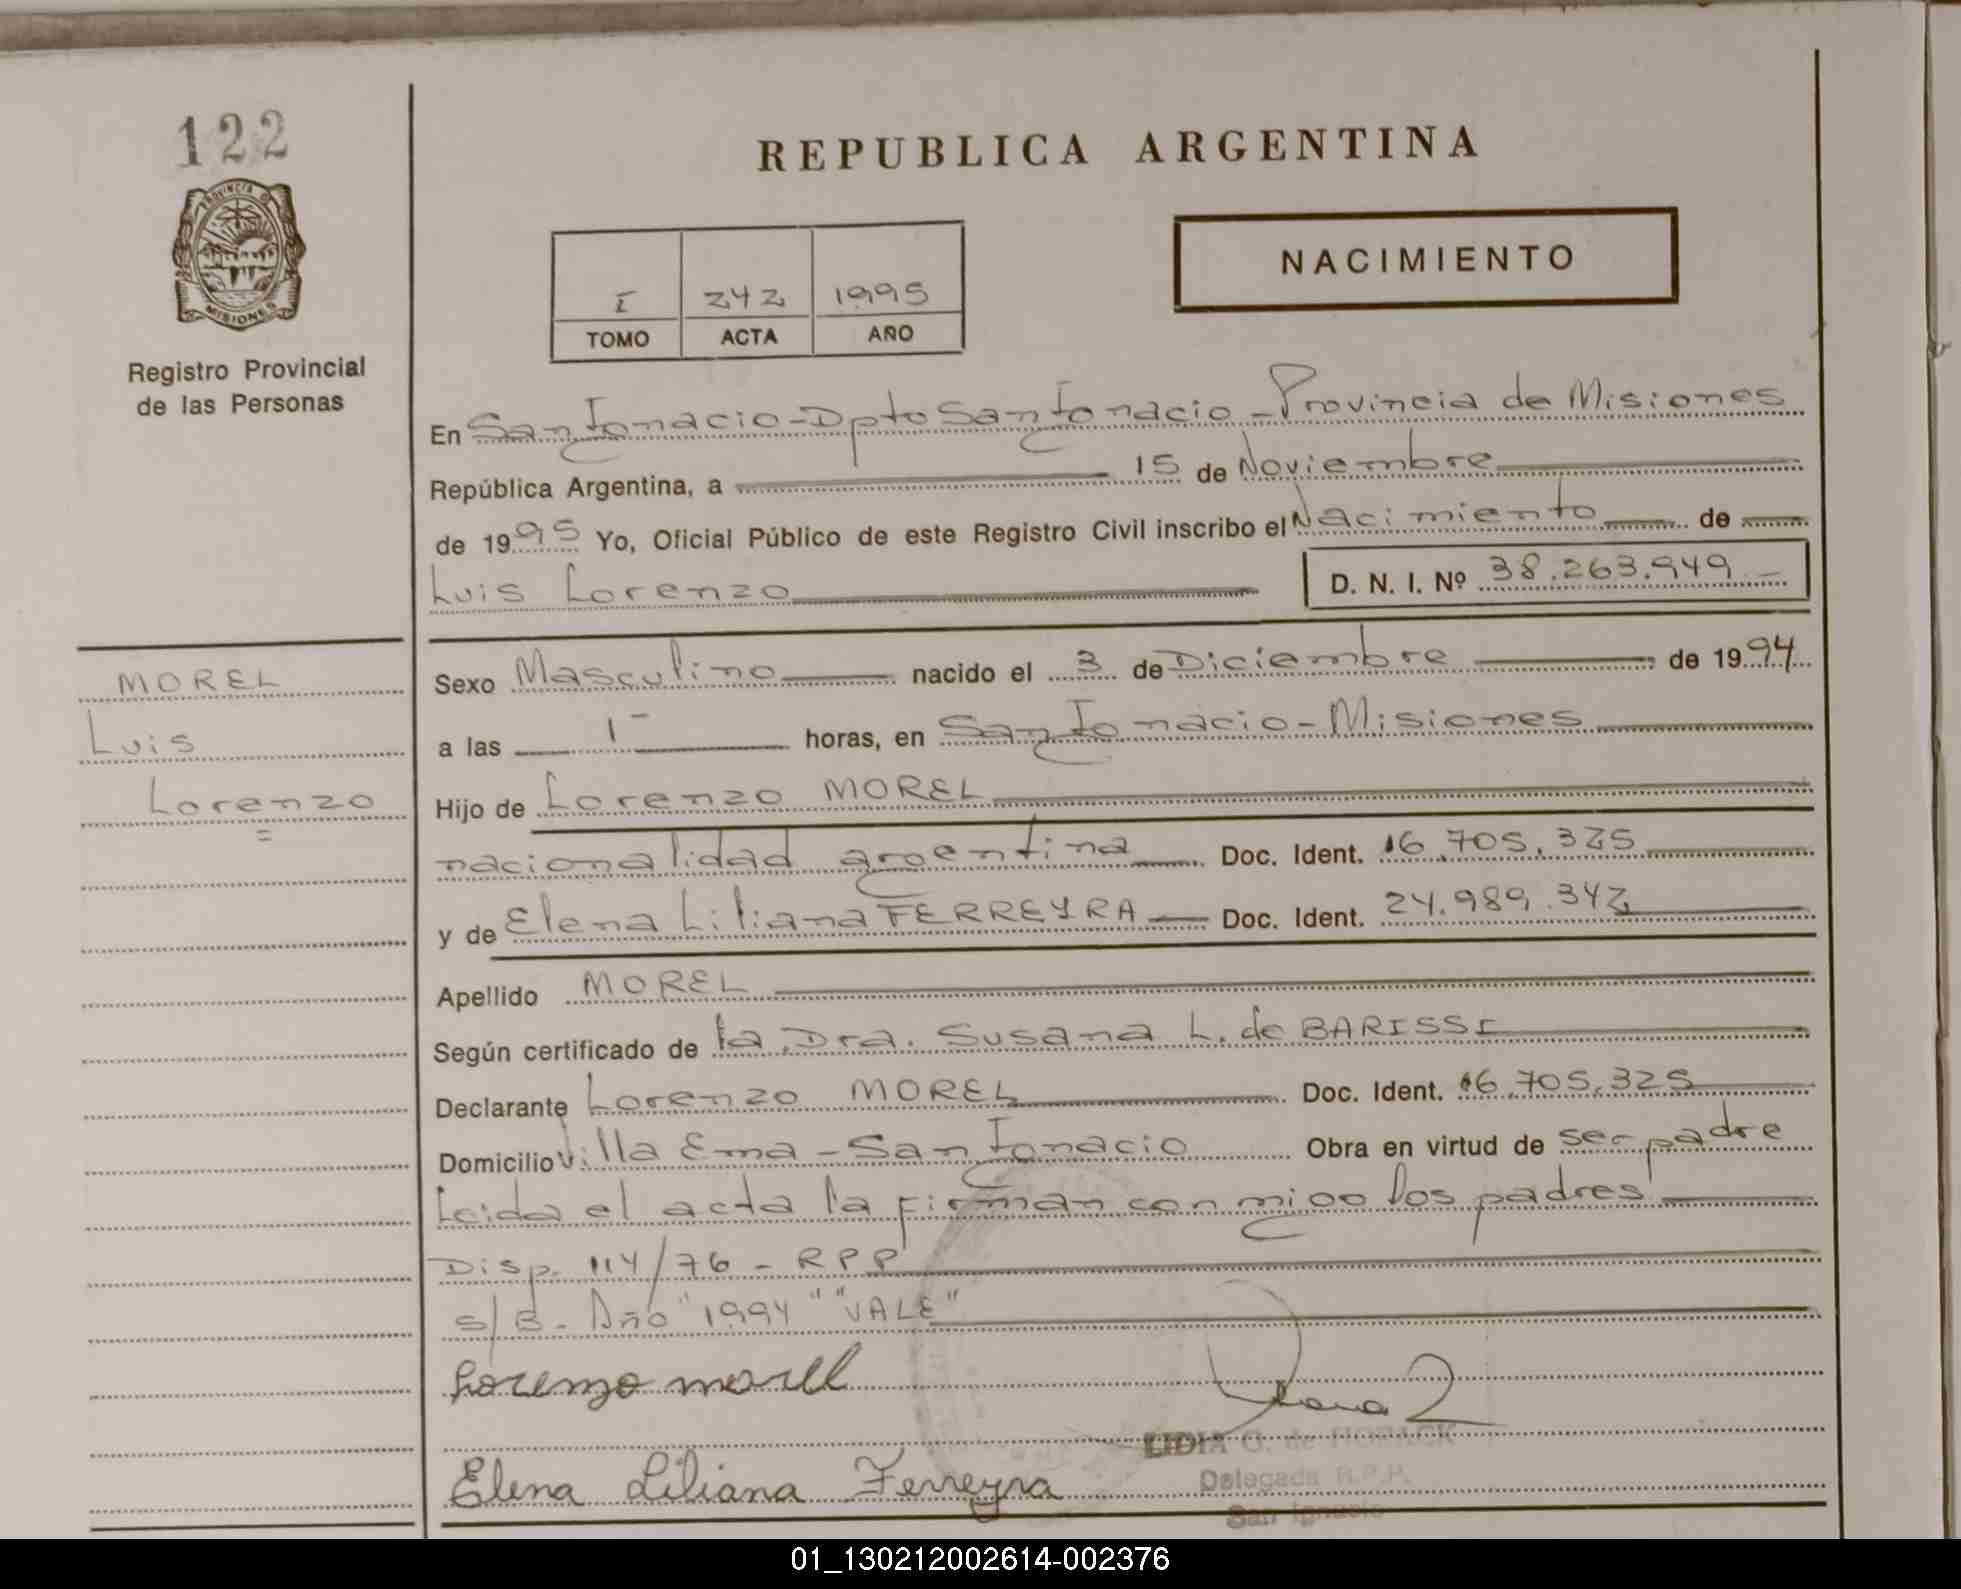 122
PROVINCIA D
MISIONES
Registro Provincial
de las Personas
REPUBLICA ARGENTINA
I 242 1995
TOMO ACTA AÑO
NACIMIENTO
En San Ignacio - Dpto San Ignacio - Provincia de Misiones
República Argentina, a 15 de Noviembre
de 1995 Yo, Oficial Público de este Registro Civil inscribo el Nacimiento de
Luis Lorenzo D. N. I. Nº 38.263.949
MOREL
Luis
Lorenzo
Sexo Masculino nacido el 3 de Diciembre de 1994
a las 1 horas, en San Ignacio - Misiones
Hijo de Lorenzo MOREL
nacionalidad argentina Doc. Ident. 16.705.325
y de Elena Liliana FERREYRA Doc. Ident. 24.989.342
Apellido MOREL
Según certificado de la Dra. Susana L. de BARISSI
Declarante Lorenzo MOREL Doc. Ident. 16.705.325
Domicilio Villa Ema - San Ignacio Obra en virtud de ser padre
Leida el acta la firman conmigo los padres
Disp. 114/76 - RPP
s/B. Año "1994" "VALE"
Lorenzo morel
LIDIA G. de HORACK
Elena Liliana Ferreyra
Delegada R.P.P.
San Ignacio
01_130212002614-002376